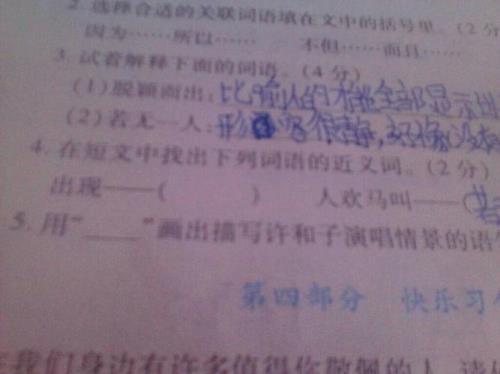 2. 选择合适的关联词语填在文中的括号里。(2分
因为……所以…… 不但……而且……
3. 试着解释下面的词语。(4分)
(1)脱颖而出:比喻人的才能全部显示出
(2)若无一人:形容很静,好像没
4. 在短文中找出下列词语的近义词。(2分)
出现——( ) 人欢马叫——(
5. 用“____”画出描写许和子演唱情景的语
第四部分 快乐习
在我们身边有许多值得你敬佩的人,请